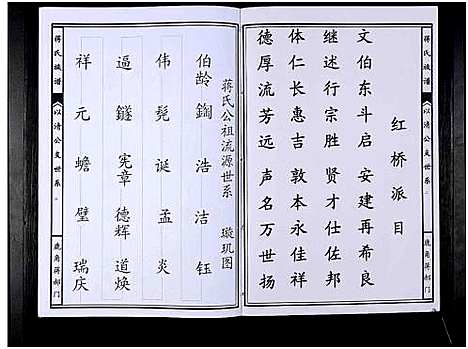 蒋氏族谱
《以清公支世系》
鹿角蒋郝门
红桥派目
文伯东斗启 安建再希良
继述行宗胜 贤才仕佐邦
体仁长惠吉 敦本永佳祥
德厚流芳远 声名万世扬
蒋氏公祖流源世系 璇玑图
伯龄 鋾 浩 洁 钰
伟 髡 诞 孟 炎
逼 鐩 宪章 德辉 道焕
祥 元 蟾 璧 瑞庆
蒋氏族谱
《以清公支世系》
鹿角蒋郝门